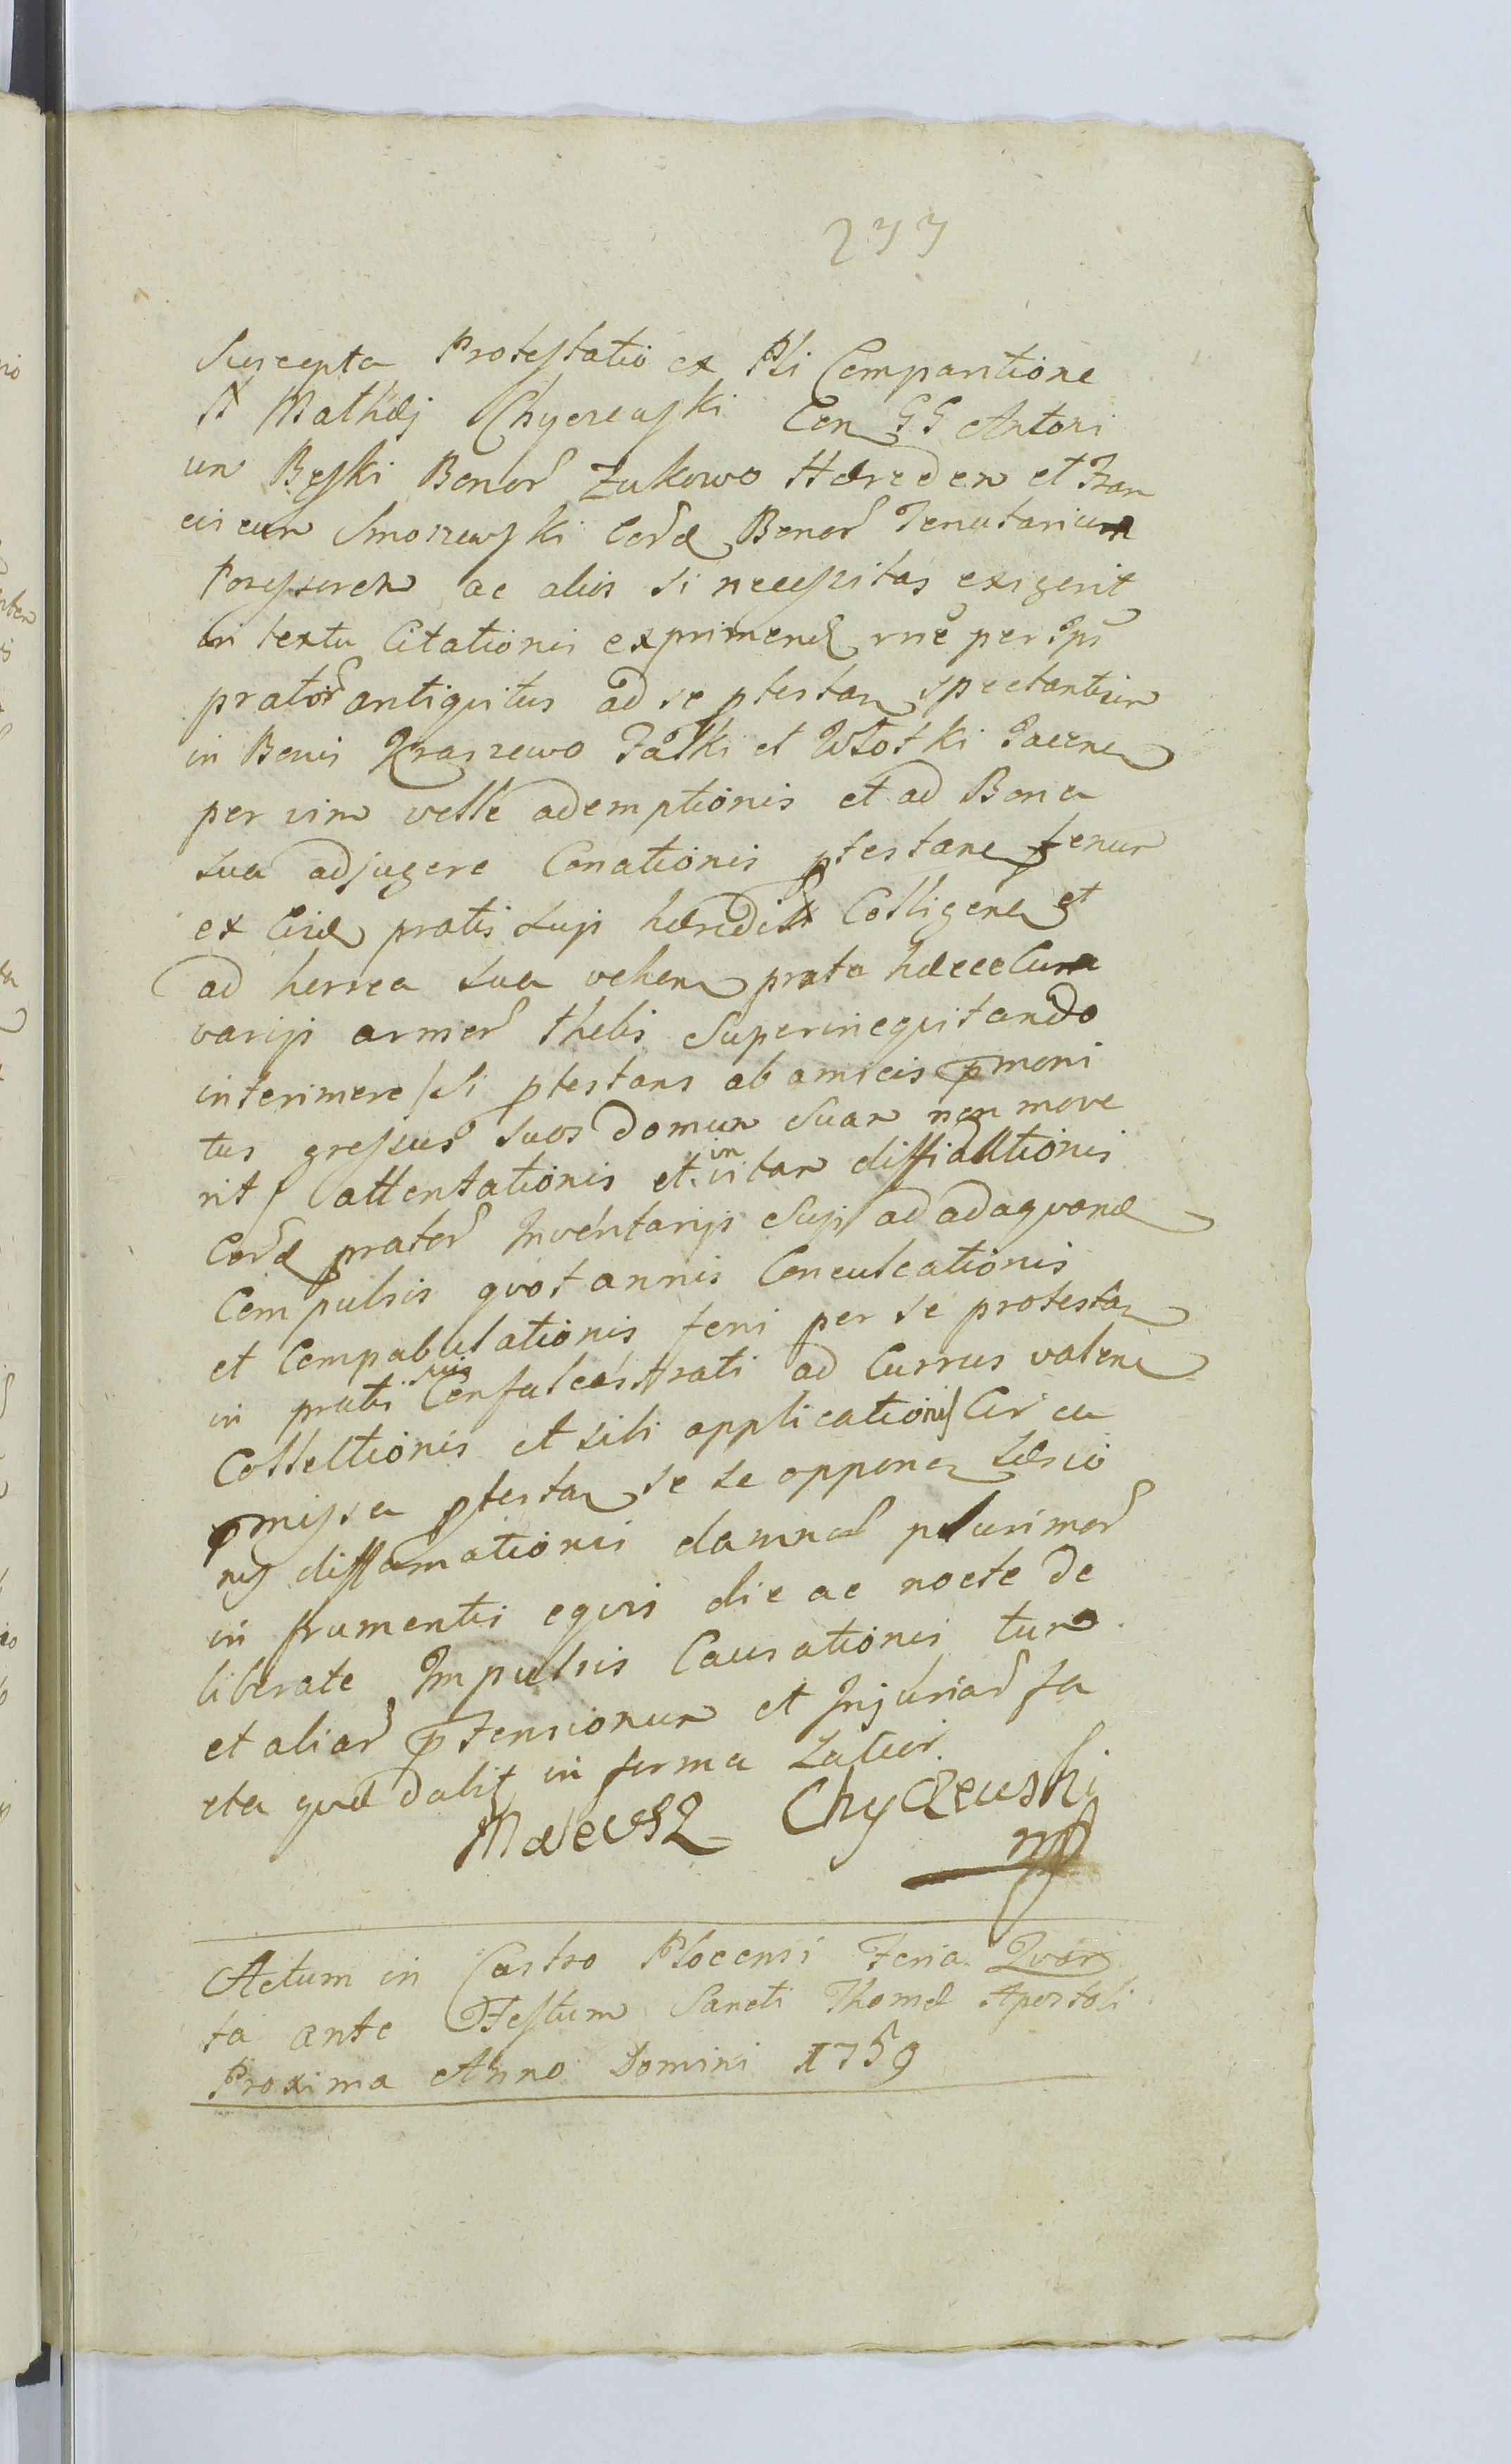 277
Suscepta Protestatio ex Pli Comparitione
N Mathæj Chyczewski Con GG Antoni
um Bęski Bonor Zukowo Hæreden et Fran
ciscum Smoszewski Eord Bonor Tenutarium
Possessorem ac alios si necessitas exigerit
in textu Citationis exprimend rne per Ips
prator antiquitus ad se ptestan spectantium
in Bonis Kraszewo Falki et Wlostki Jacen
per vim velle ademptionis et ad Bona
sua adjugere Conationis ptestane fenum
ex Eisd pratis suis hæredit Colligen et
ad horrea sua vehen prata hæcce Cum
varijs armor thelis Superinequitando
interimere / Si ptestans ab amicis pmoni
tus gressus suos domum Suam non move
rit / attentationis et in vitam diffidationis
Eord prator Inventarijs Suis ad adaquand
Compulsis quotannis Conculcationis
et Compabulationis feni per se protestan
in pratis suis Confalcastrati ad Currus valen
Collectionis et sibi applicationis Circa
pmissa ptestan se se opponen Læsio
nis diffamationis damnor plurimor
in frumentis equis die ac nocte de
liberate Impulsis Causationis tum
et aliar ptensionum et Injuriar fa
cta quæ dabit in forma Latior.
Mateusz Chyczewski
mp
Actum in Castro Plocensi Feria Qvar
ta ante Festum Sancti Thomæ Apostoli
Proxima Anno Domini 1759